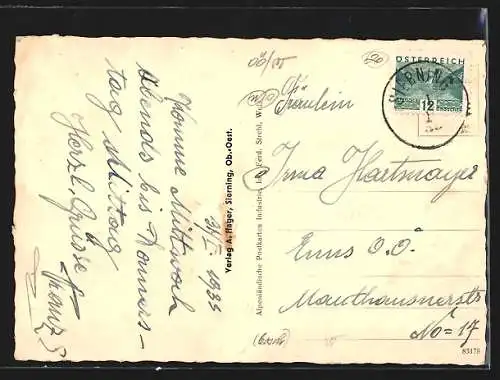 31/I. 1935
Komme Mittwoch
Abends bis Donners-
tag Mittag
Herzl. Grüsse
Franz
Verlag A. Hager, Sierning, Ob.-Oest.
Alpenländische Postkarten Industrie Ferd. Strehl, W
ÖSTERREICH
12
SIERNING
Fräulein
Irma Hartmayer
Enns O.Ö.
Mauthausnerstr
No= 17
83178